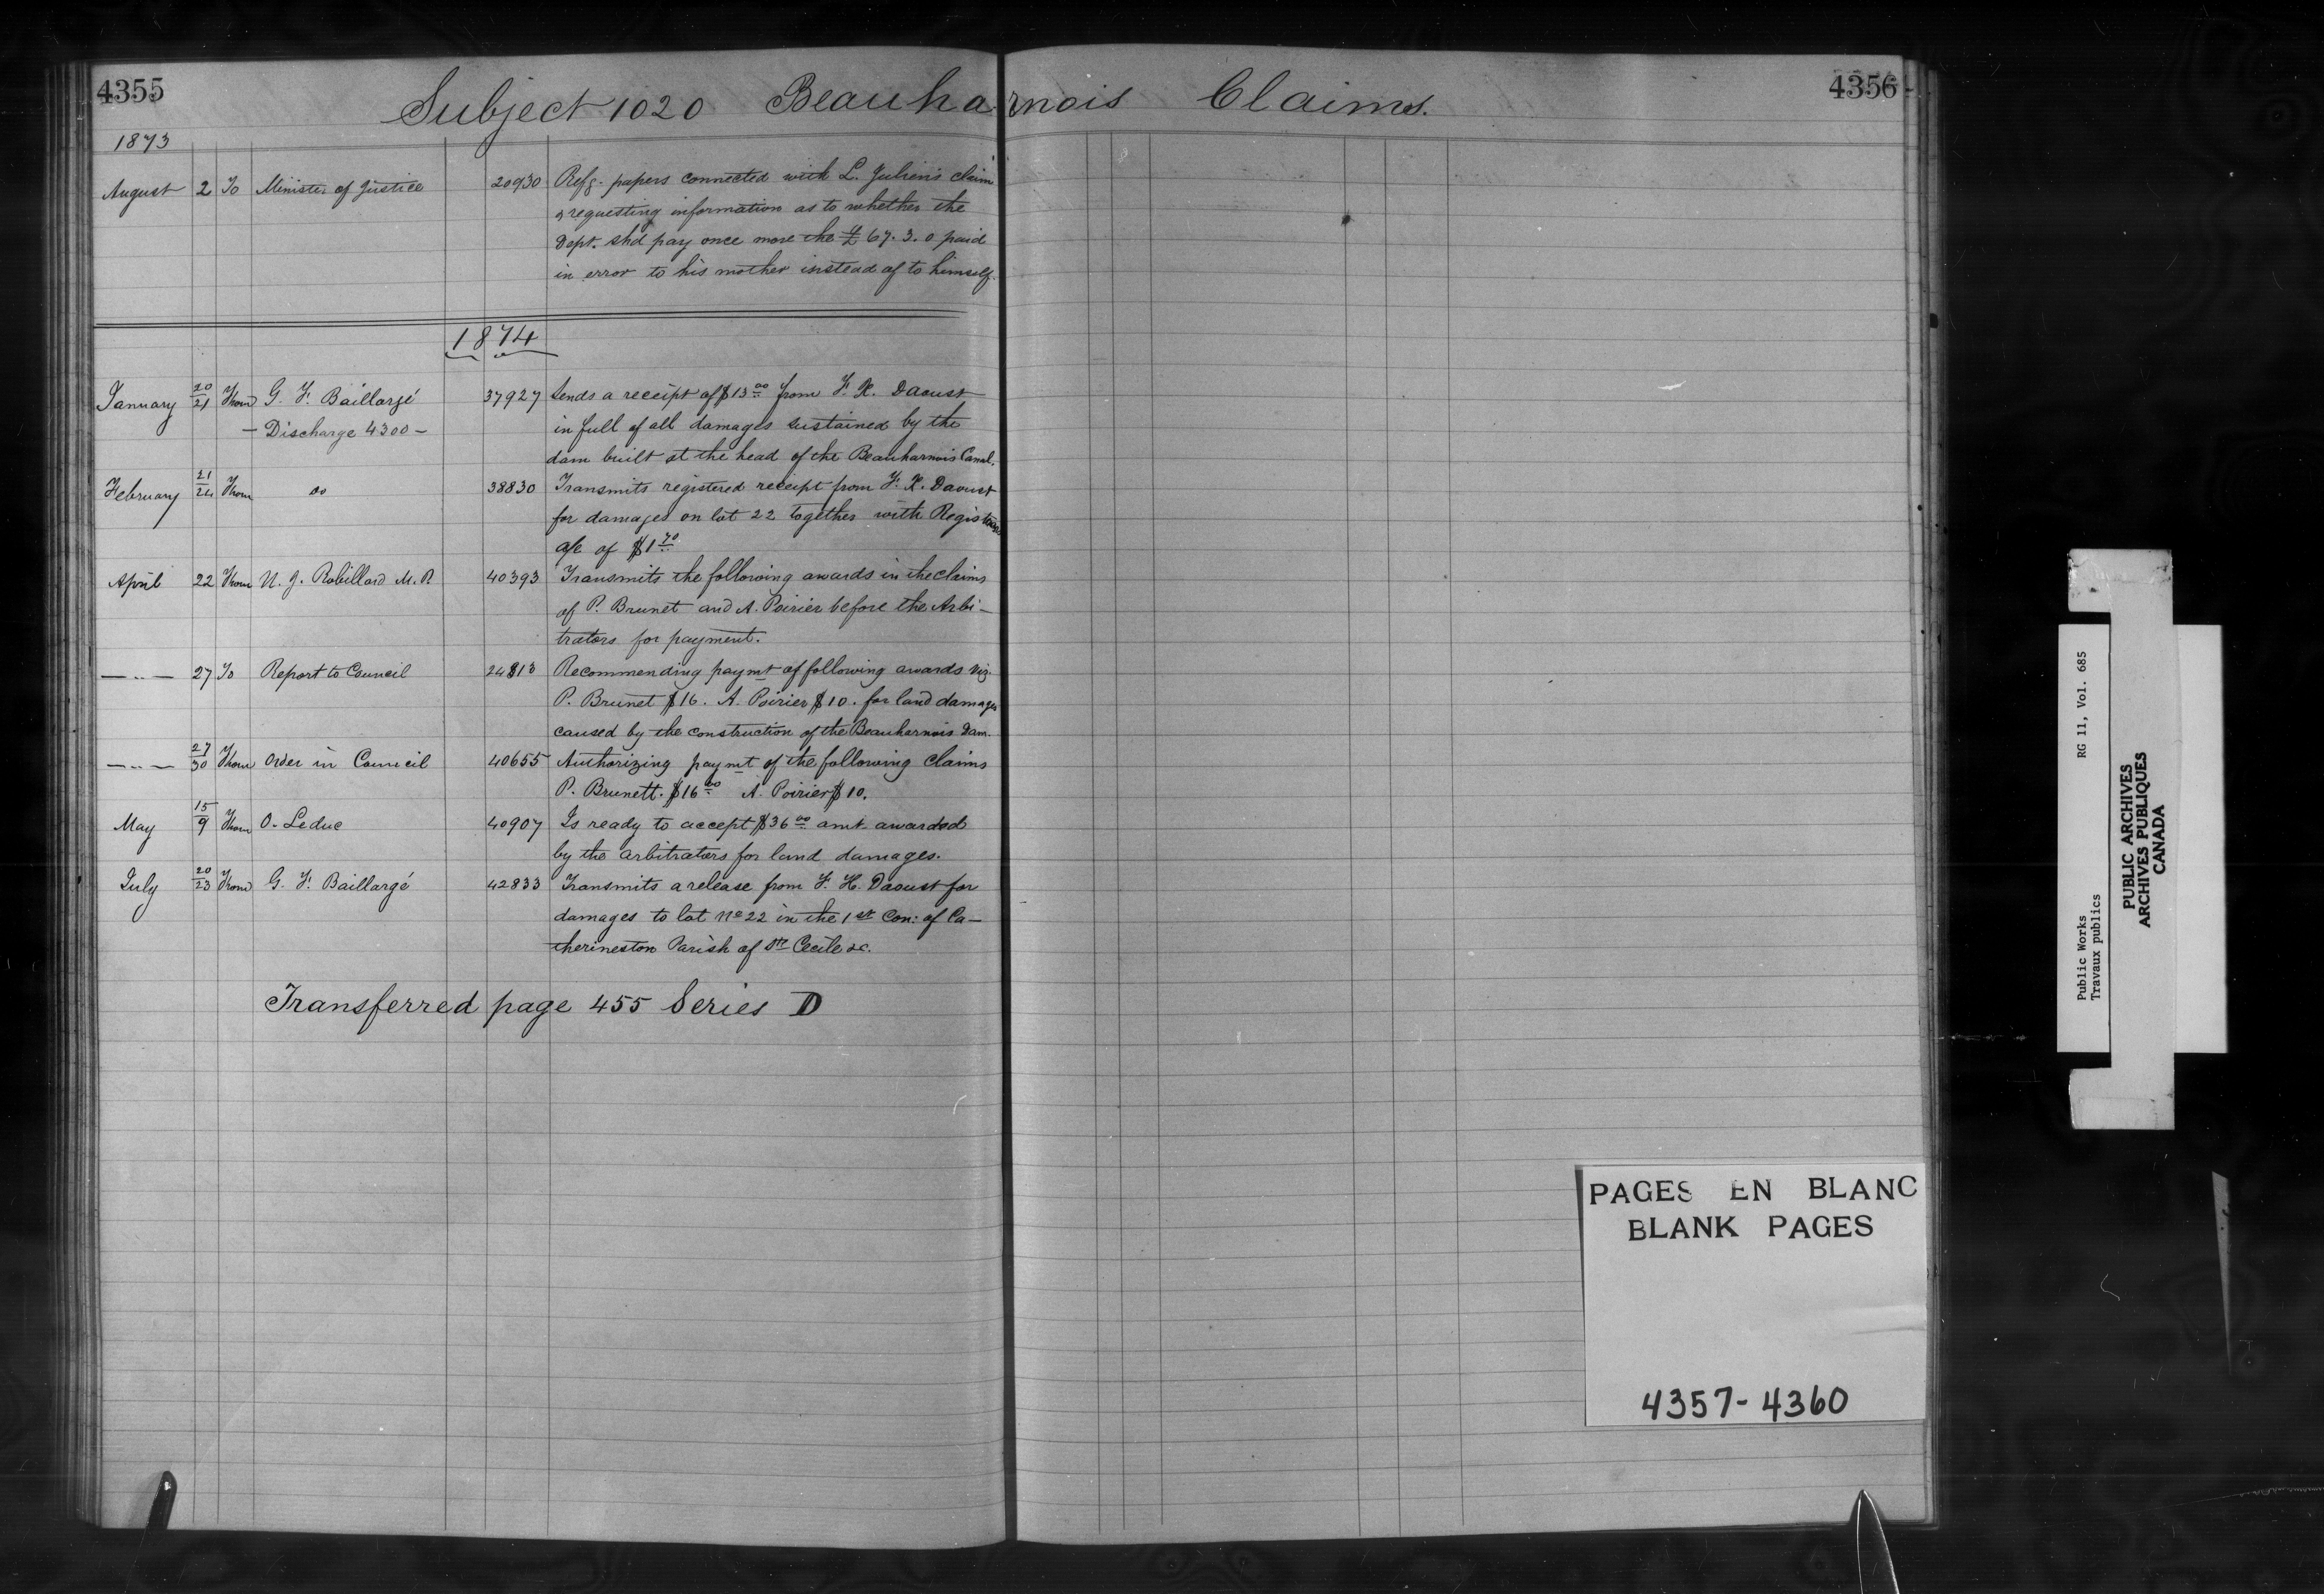 4355
4356
Subject 1020 Beauharnois Claims.
1873
August 2 To Minister of Justice 20930 Refg. papers connected with L. Julien's claim
& requesting information as to whether the
Dept. shd pay once more the £ 67.3.0 paid
in error to his mother instead of to himself.
1874
January 20/21 From G. F. Baillargé 37927 Sends a receipt of $13.00 from F. X. Daoust
— Discharge 4300 — in full of all damages sustained by the
dam built at the head of the Beauharnois Canal.
February 21/24 From do 38830 Transmits registered receipt from F. X. Daoust
for damages on lot 22 together with Registrars
a/c of $1.70
April 22 From U. J. Robillard M.P. 40393 Transmits the following awards in the claims
of P. Brunet and A. Poirier before the Arbi-
trators for payment.
— " — 27 To Report to Council 24813 Recommending paymt of following awards viz.
P. Brunet $16. A. Poirier $10. for land damages
caused by the construction of the Beauharnois Dam.
— " — 27/30 From Order in Council 40655 Authorizing paymt of the following Claims
P. Brunett. $16.00 A. Poirier $10.
May 15/9 From O. Leduc 40907 Is ready to accept $36.00 amt awarded
by the arbitrators for land damages.
July 20/23 From G. F. Baillargé 42833 Transmits a release from F. H. Daoust for
damages to lot No 22 in the 1st Con: of Ca-
therineston Parish of Ste Cecile &c.
Transferred page 455 Series D
PAGES EN BLANC
BLANK PAGES
4357-4360
Public Works RG 11, Vol. 685
Travaux publics
PUBLIC ARCHIVES
ARCHIVES PUBLIQUES
CANADA